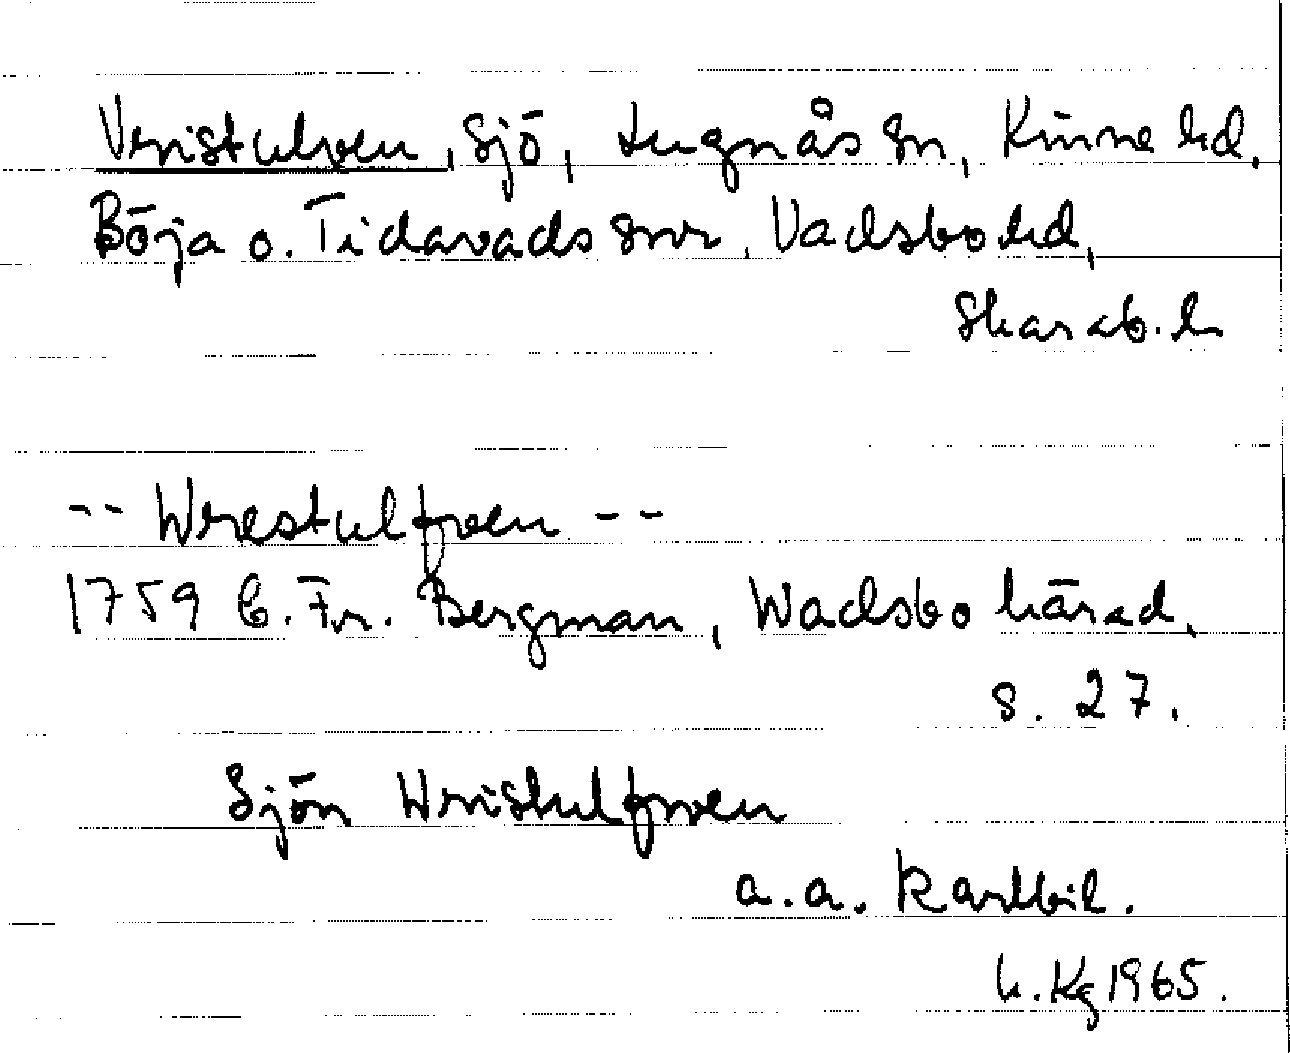 Vristulven, sjö, Lugnås sn, Kinne hd,
Böja o. Tidavads snr, Vadsbo hd,
Skarab. l
-- Wrestulfven --
1759 C. Fr. Bergman, Wadsbo härad,
s. 27.
Sjön Wristulfven
a.a. Kartbil.
h. Kg 1965.